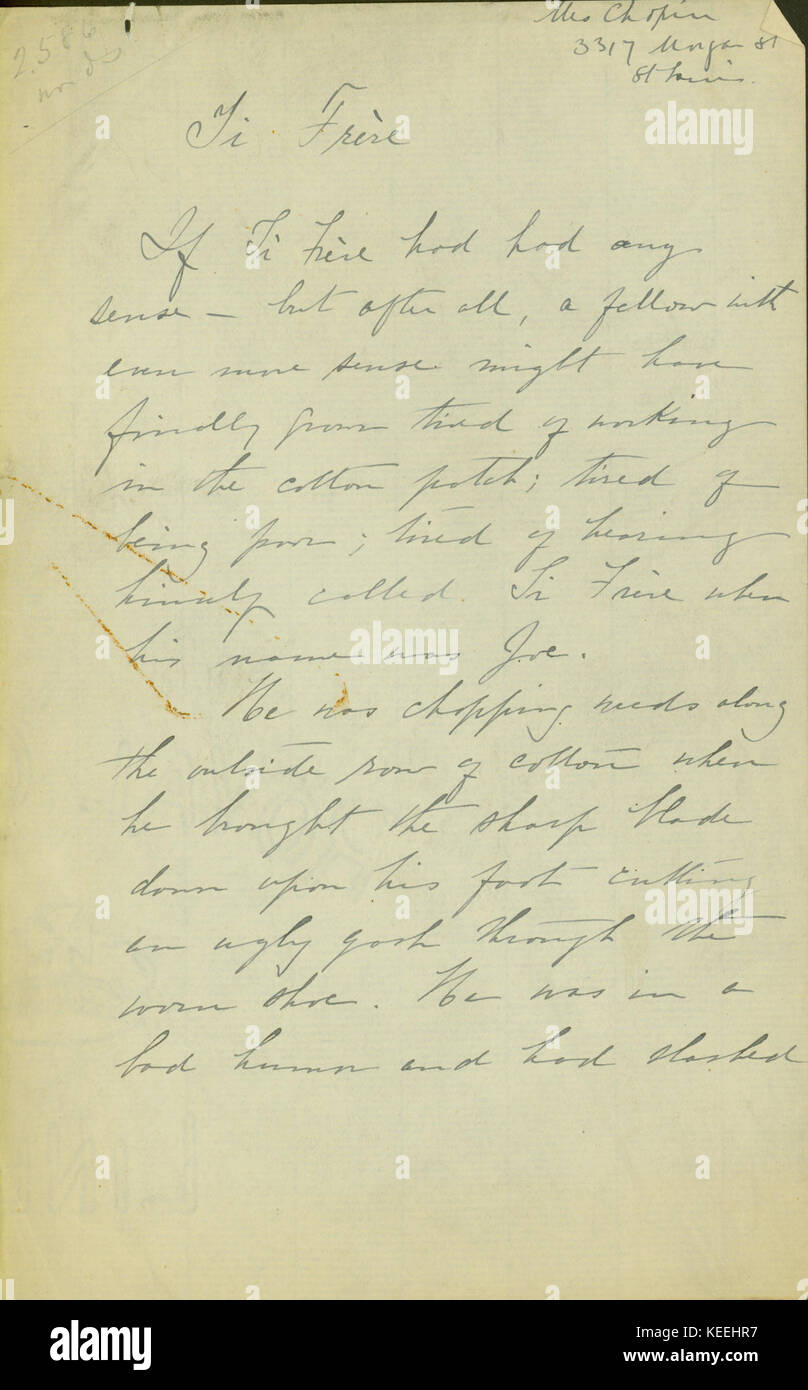 Mrs Chopin
3317 Morgan St
St Louis.
2.586
words
Ti Frère
If Ti Frère had had any
sense – but after all, a fellow with
even more sense might have
finally grown tired of working
in the cotton patch; tired of
being poor; tired of hearing
himself called Ti Frère when
his name was Joe.
He was chopping weeds along
the outside row of cotton when
he brought the sharp blade
down upon his foot cutting
an ugly gash through the
worn shoe. He was in a
bad humor and had slashed
a alamy
alamy stock photo
Image ID: KEEHR7
www.alamy.com